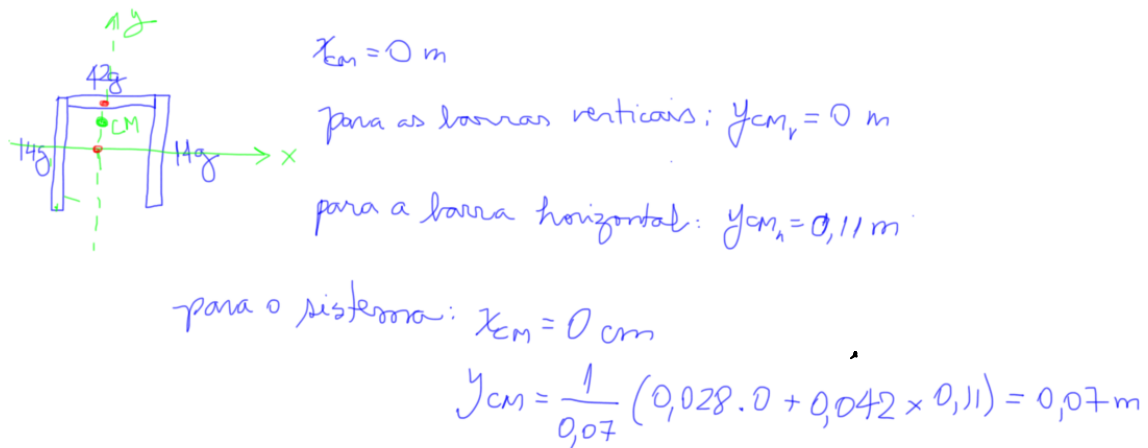 y
42g
CM
14g
14g
x
x_CM = 0 m
para as barras verticais: y_CM_v = 0 m
para a barra horizontal: y_CM_h = 0,11 m
para o sistema: x_CM = 0 cm
y_CM = 1/0,07 (0,028 . 0 + 0,042 × 0,11) = 0,07 m